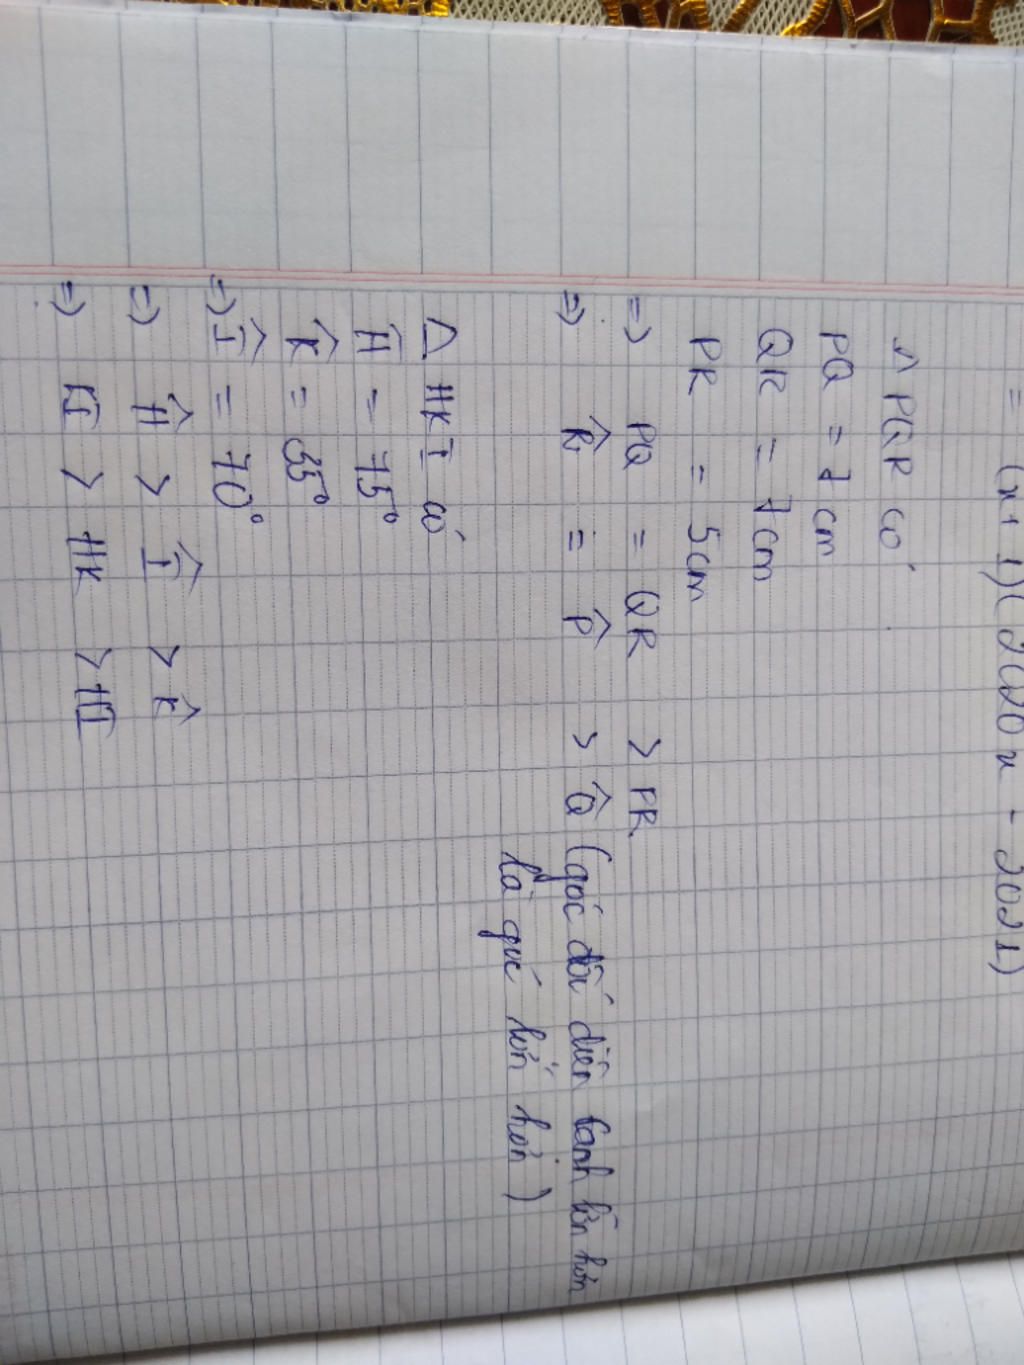 = (x + 1)(2020x - 2021)
Δ PQR có
PQ = 7 cm
QR = 7 cm
PR = 5 cm
=> PQ = QR > PR
=> R̂ = P̂ > Q̂ (góc đối diện cạnh lớn hơn
là góc lớn hơn)
Δ HKI có
Ĥ = 75°
K̂ = 35°
=> Î = 70°
=> Ĥ > Î > K̂
=> KI > HK > HI